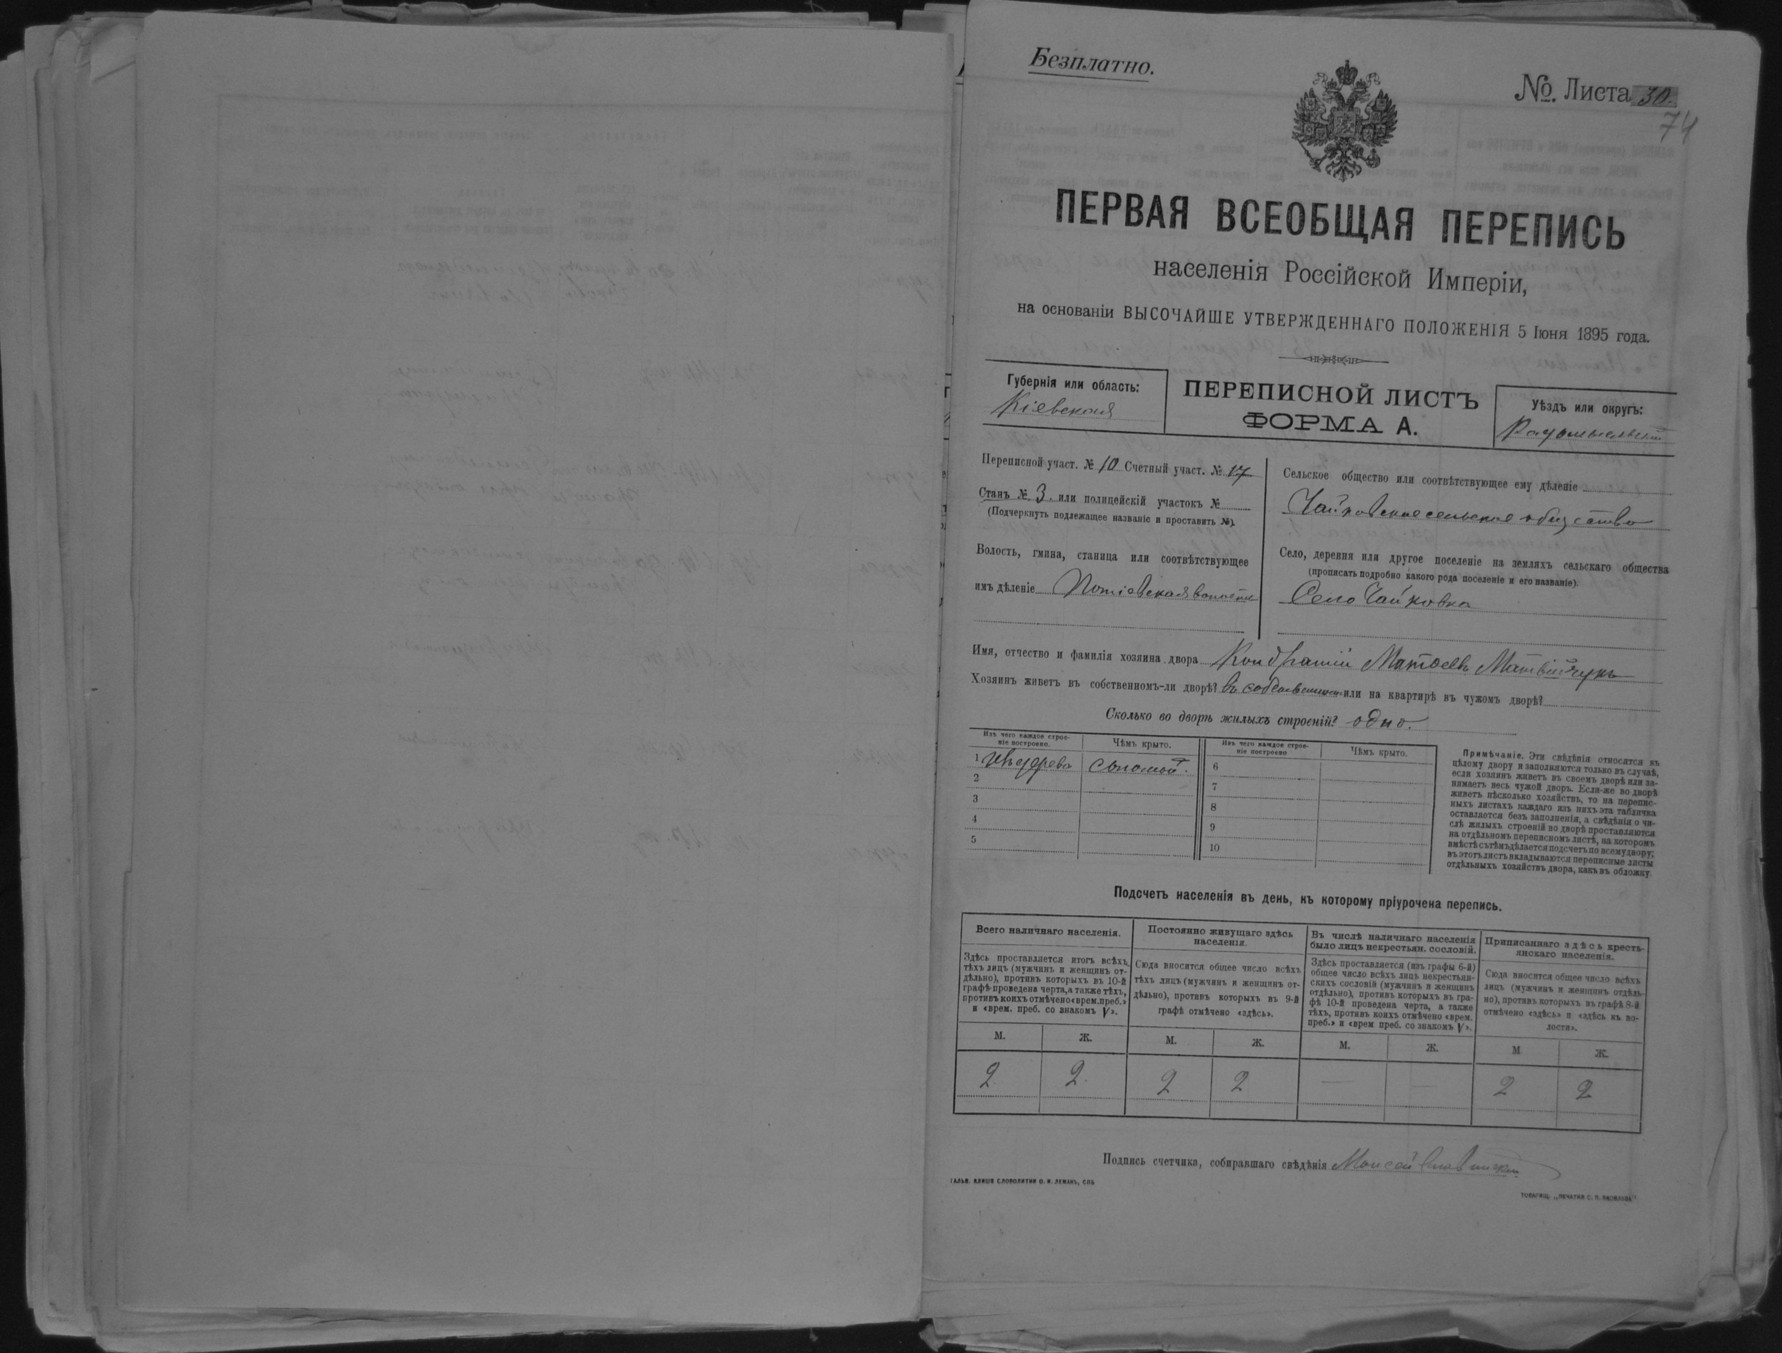 Безплатно.
№. Листа 30.
74
ПЕРВАЯ ВСЕОБЩАЯ ПЕРЕПИСЬ
населенія Россійской Имперіи,
на основаніи ВЫСОЧАЙШЕ УТВЕРЖДЕННАГО ПОЛОЖЕНІЯ 5 Іюня 1895 года.
Губернія или область:
Кіевская
ПЕРЕПИСНОЙ ЛИСТЪ
ФОРМА А.
Уѣздъ или округъ:
Радомысльскій
Переписной участ. № 10 Счетный участ. № 17
Станъ № 3. или полицейскій участокъ №
(Подчеркнуть подлежащее названіе и проставить №).
Волость, гмина, станица или соотвѣтствующее
имъ дѣленіе Потіевская волость
Сельское общество или соотвѣтствующее ему дѣленіе
Чайковское сельское общество
Село, деревня или другое поселеніе на земляхъ сельскаго общества
(прописать подробно какого рода поселеніе и его названіе)
Село Чайковка
Имя, отчество и фамилія хозяина двора Кондратій Матвеевъ Матвійчукъ
Хозяинъ живетъ въ собственномъ-ли дворѣ? въ собственномъ или на квартирѣ въ чужомъ дворѣ?
Сколько во дворѣ жилыхъ строеній? одно.
Изъ чего каждое строе-
ніе построено.
Чѣмъ крыто.
Изъ чего каждое строе-
ніе построено
Чѣмъ крыто.
1 Изъ дерева соломой.
2
3
4
5
6
7
8
9
10
Примѣчаніе. Эти свѣдѣнія относятся къ
цѣлому двору и заполняются только въ случаѣ,
если хозяинъ живетъ въ своемъ дворѣ или за-
нимаетъ весь чужой дворъ. Если-же во дворѣ
живетъ нѣсколько хозяйствъ, то на перепис-
ныхъ листахъ каждаго изъ нихъ эта табличка
оставляется безъ заполненія, а свѣдѣнія о чи-
слѣ жилыхъ строеній во дворѣ проставляются
на отдѣльномъ переписномъ листѣ, на которомъ
вмѣстѣ съ тѣмъ дѣлается подсчетъ по всему двору;
въ этотъ листъ вкладываются переписные листы
отдѣльныхъ хозяйствъ двора, какъ въ обложку.
Подсчетъ населенія въ день, къ которому пріурочена перепись.
Всего наличнаго населенія.
Здѣсь проставляется итогъ всѣхъ
тѣхъ лицъ (мужчинъ и женщинъ от-
дѣльно), противъ которыхъ въ 10-й
графѣ проведена черта, а также тѣхъ,
противъ коихъ отмѣчено «врем. преб.»
и «врем. преб. со знакомъ V».
Постоянно живущаго здѣсь
населенія.
Сюда вносится общее число всѣхъ
тѣхъ лицъ (мужчинъ и женщинъ от-
дѣльно), противъ которыхъ въ 9-й
графѣ отмѣчено «здѣсь».
Въ числѣ наличнаго населенія
было лицъ некрестьян. сословій.
Здѣсь проставляется (изъ графы 6-й)
общее число всѣхъ лицъ некрестьян-
скихъ сословій (мужчинъ и женщинъ
отдѣльно), противъ которыхъ въ гра-
фѣ 10-й проведена черта, а также
тѣхъ, противъ коихъ отмѣчено «врем.
преб.» и «врем преб. со знакомъ V».
Приписаннаго здѣсь кресть-
янскаго населенія.
Сюда вносится общее число всѣхъ
лицъ (мужчинъ и женщинъ отдѣль-
но), противъ которыхъ въ графѣ 8-й
отмѣчено «здѣсь» и «здѣсь въ во-
лости».
М. Ж. М. Ж. М. Ж. М Ж.
2 2. 2 2 — — 2 2
Подпись счетчика, собиравшаго свѣдѣнія Моисей
ГАЛЬВ. КЛИШЕ СЛОВОЛИТНИ О. И. ЛЕМАНЪ, СПБ
ТОВАРИЩ. „ПЕЧАТНЯ С. П. ЯКОВЛЕВА“